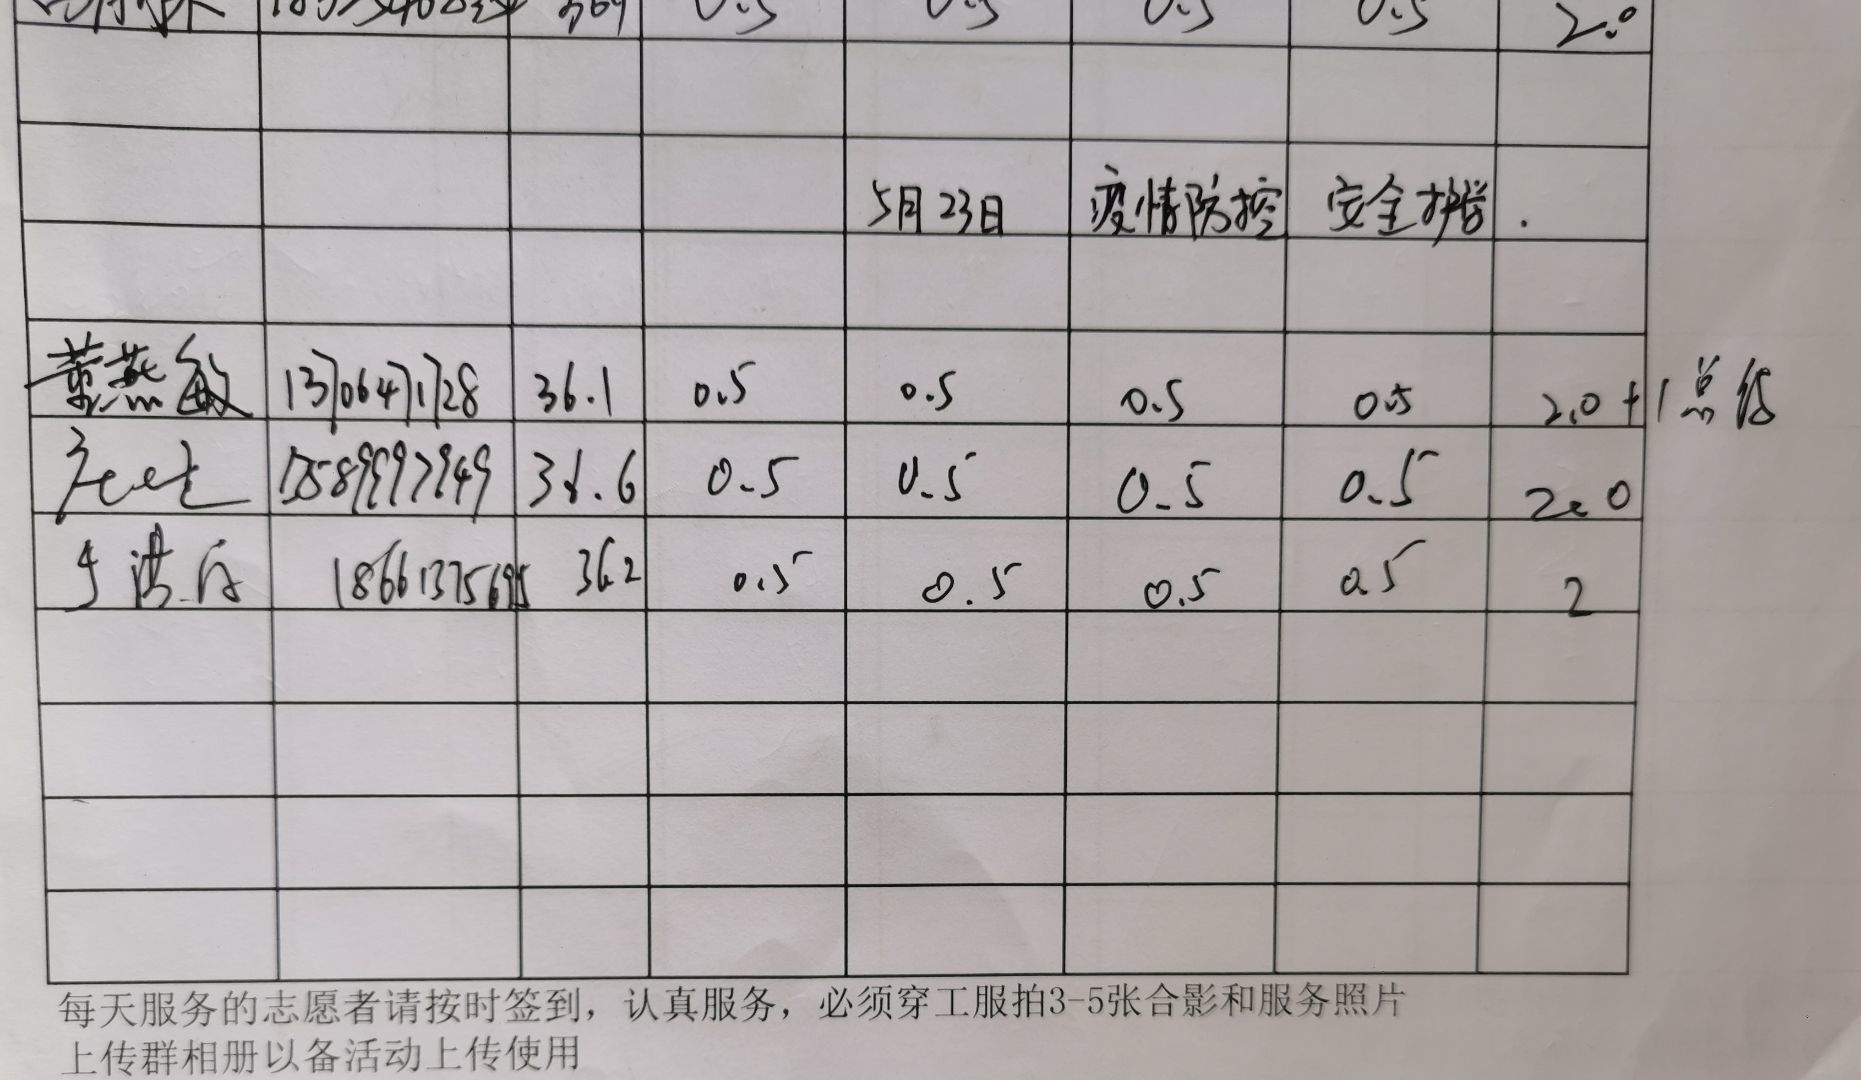 0.5 0.5 0.5 0.5 2.0
5月23日 疫情防控 安全护学.
董燕敏 13706471728 36.1 0.5 0.5 0.5 0.5 2.0+1总结
15899997949 36.6 0.5 0.5 0.5 0.5 2.0
于洪 36.2 0.5 0.5 0.5 0.5 2
每天服务的志愿者请按时签到，认真服务，必须穿工服拍3-5张合影和服务照片
上传群相册以备活动上传使用